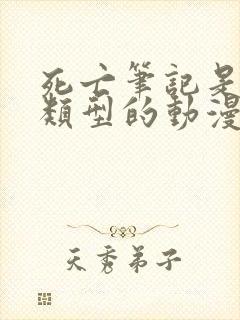 死亡筆記是
類型的動漫
天秀弟子